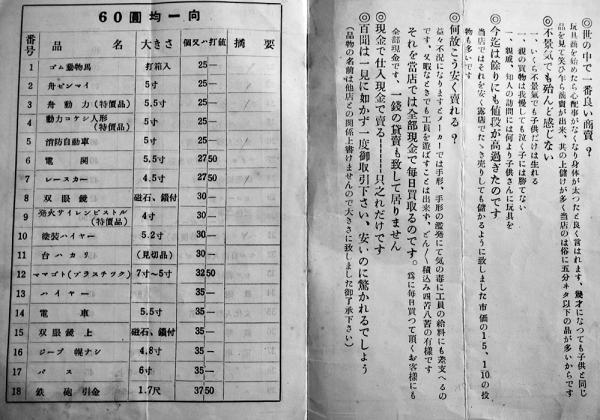 60圓均一向
番号 品名 大きさ 個又ハ打値 摘要
1 ゴム動物馬 打箱入 25―
2 舟ゼンマイ 5寸 25―
3 舟動力(特價品) 5.5寸 25―
4 動力コケシ人形(特價品) 6寸 25―
5 消防自動車 5寸 25―
6 電関 5.5寸 2750
7 レースカー 4.5寸 2750
8 双眼鏡 磁石、鎖付 30―
9 発火サイレンピストル(特價品) 4寸 30―
10 塗装ハイヤー 5.2寸 30―
11 台ハカリ (見切品) 30―
12 ママゴト(プラスチツク) 7寸~5寸 3250
13 ハイヤー 35―
14 電車 5.5寸 35―
15 双眼鏡上 磁石、鎖付 35―
16 ジープ幌ナシ 4.8寸 35―
17 バス 6寸 35―
18 鉄砲引金 1.7尺 3750
◎世の中で一番良い商賣?
玩具商を始めたら心配事がなくなり身体が太つたと良く言はれます、幾才になつても子供と同じ
品を見て笑ひ乍ら商賣が出来、其の上儲けが多く当店のは俗に五分ネタ以下の品が多いからです
◎不景気でも殆んど感じない
一、いくら不景気でも子供だけは生れる
一、親の買物は我慢しても泣く子には勝てない
一、親戚、知人の訪問には何より子供さんに玩具を
◎今迄は餘りにも値段が高過ぎたのです
当店ではそれを安く露店でたゝき売りしても儲かるように致しました市価の15、1|10の投
物も多いです
◎何故こう安く賣れる?
益々不況になりますとメーカーでは手形、手形の濫発にて気の毒に工員の給料にも差支へるの
です、又暇なときでも工員を遊ばすことは出来ず、どん〳〵積込み四苦八苦の有様です
それを当店では全部現金で毎日買取るのです。為に毎日買つて頂くお客様にも
全部現金です、一錢の貸賣も致して居りません
◎現金で仕入現金で賣る……只之れだけです
◎百聞は一見に如かず一度御取引下さい、安いのに驚かれるでしょう
(品物の名前は他店との関係上書けませんので大きさに致しました御了承下さい)